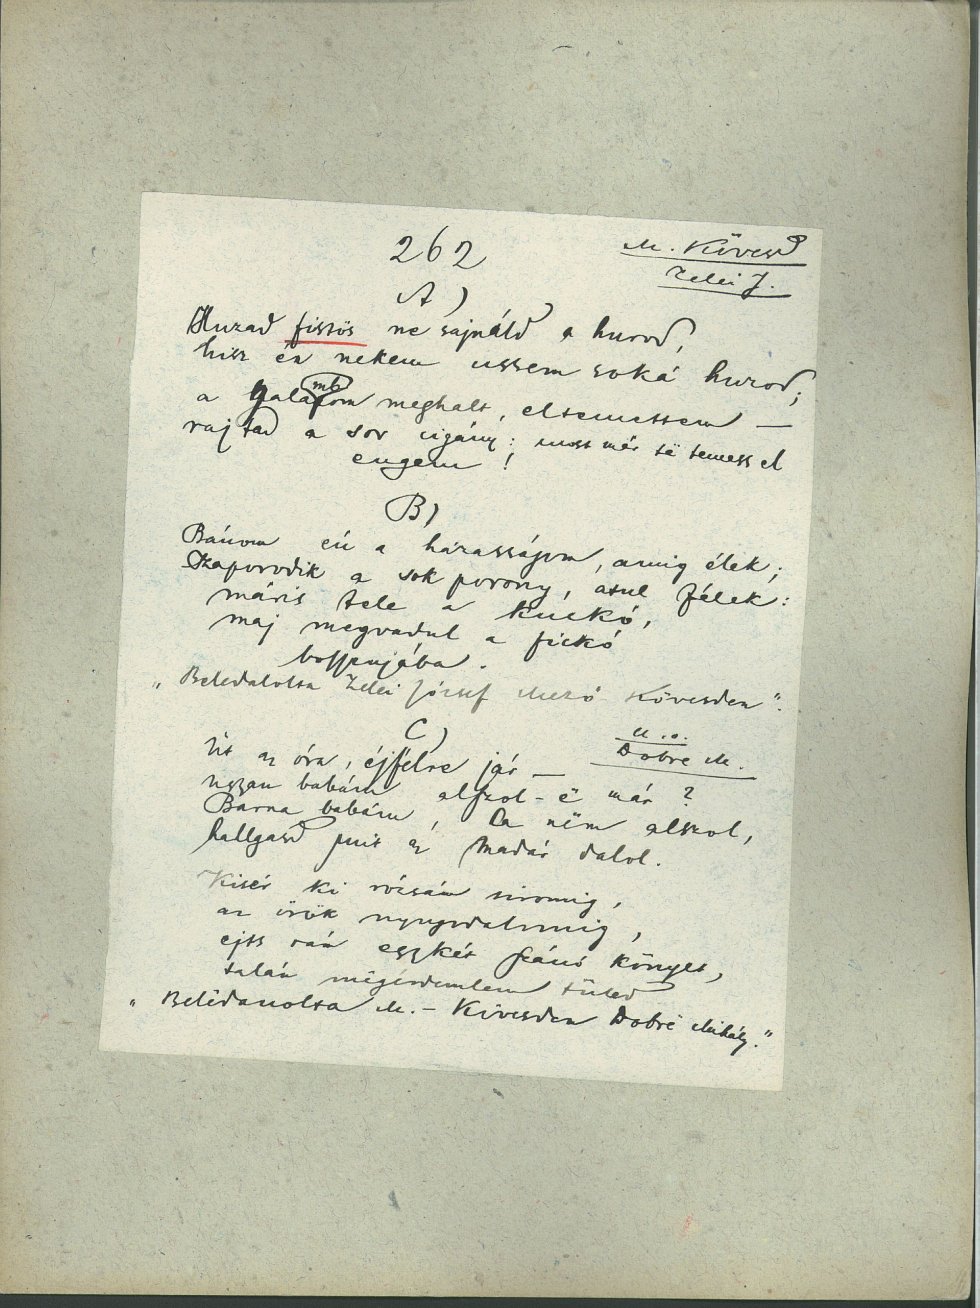 262
M. Kövesd
Zelei J.
A)
Huzad füstös ne sajnáld a hurod,
hisz én nekem ussem soká huzod;
a galambom meghalt, eltemettem —
rajtad a sor cigány: most már të temess el
engem!
B)
Bánom én a házasságom, amig élek;
Szaporodik a sok porony, attul félek:
máris tele a kuckó,
maj megvadul a fickó
„Belédalolta Zelei József Mező Kövesden".
C)
u. o.
Dobré M.
Üt az óra, éjfélre jár —
uszan babám alszol-ë már?
Barna babám, Da nëm alszol,
hallgasd mit az madár dalol.
Kisér ki rózsám siromig,
az örök nyugodalmig,
ejts rám egykét könyet,
talán mëgérdemlem tüled
„Belédanolta M.-Kövesden Dobré Mihály."